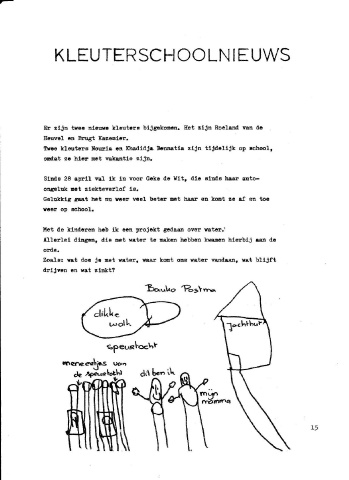 KLEUTERSCHOOLNIEUWS
Er zijn twee nieuwe kleuters bijgekomen. Het zijn Roeland van de
Heuvel en Brugt Kazemier.
Twee kleuters Nouria en Khadidja Bennatia zijn tijdelijk op school,
omdat ze hier met vakantie zijn.
Sinds 28 april val ik in voor Geke de Wit, die sinds haar auto-
ongeluk met ziekteverlof is.
Gelukkig gaat het nu weer veel beter met haar en komt ze af en toe
weer op school.
Met de kinderen heb ik een projekt gedaan over water.
Allerlei dingen, die met water te maken hebben kwamen hierbij aan de
orde.
Zoals: wat doe je met water, waar komt ons water vandaan, wat blijft
drijven en wat zinkt?
Bauko Postma
dikke
wolk
Jachthut
speurtocht
meneertjes van
de speurtocht
dit ben ik
mijn
mamma
15